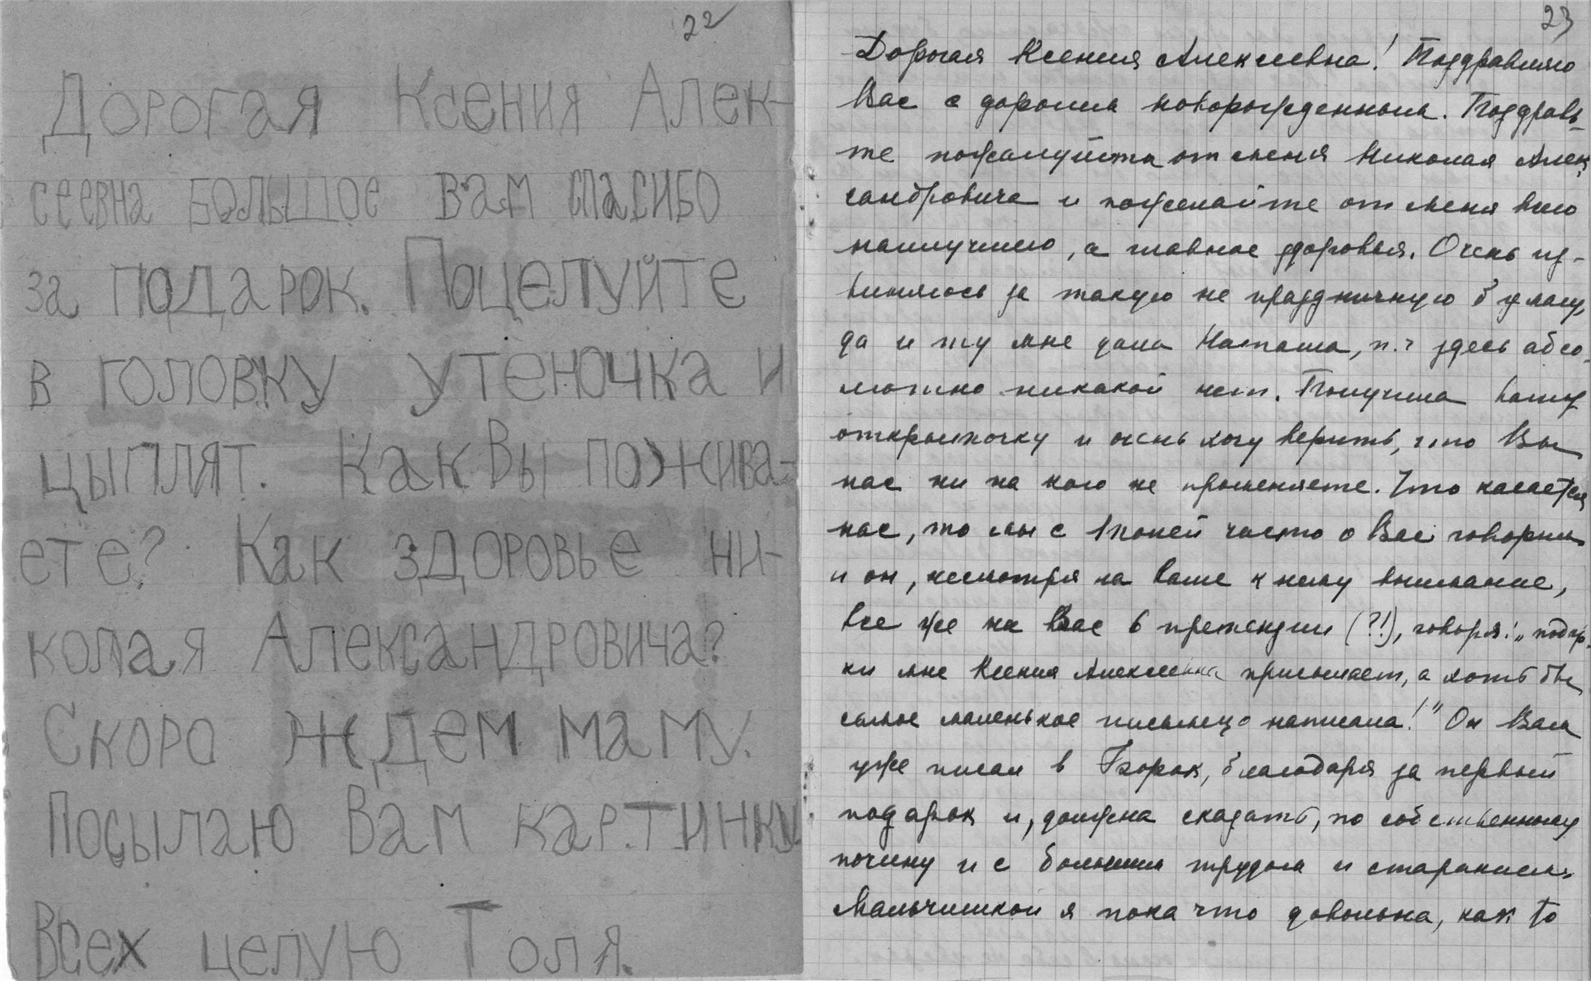 22
Дорогая Ксения Алек-
сеевна большое вам спасибо
за подарок. Поцелуйте
в головку утеночка и
цыплят. Как Вы пожива-
ете? Как здоровье Ни-
колая Александровича?
Скоро ждем маму.
Посылаю Вам картинку
Всех целую Толя.
23
Дорогая Ксения Алексеевна! Поздравляю
Вас с дорогим новорожденным. Поздравь-
те пожалуйста от меня Николая Алек
сандровича и пожелайте от меня всего
наилучшего, а главное здоровья. Очень из-
виняюсь за такую не праздничную бумагу,
да и ту мне дала Наташа, п.ч здесь абсо-
лютно никакой нет. Получила вашу
открыточку и очень хочу верить, что Вы
нас ни на кого не променяете. Что касается
нас, то мы с Толей часто о Вас говорим
и он, несмотря на ваше к нему внимание,
все же на Вас в претензии (?!), говоря: „подар-
ки мне Ксения Алексеевна присылает, а хоть бы
самое маленькое письмецо написала!" Он Вам
уже писал в Борок, благодаря за первый
подарок и, должна сказать, по собственному
почину и с большим трудом и старанием.
Мальчишкой я пока что довольна, как то